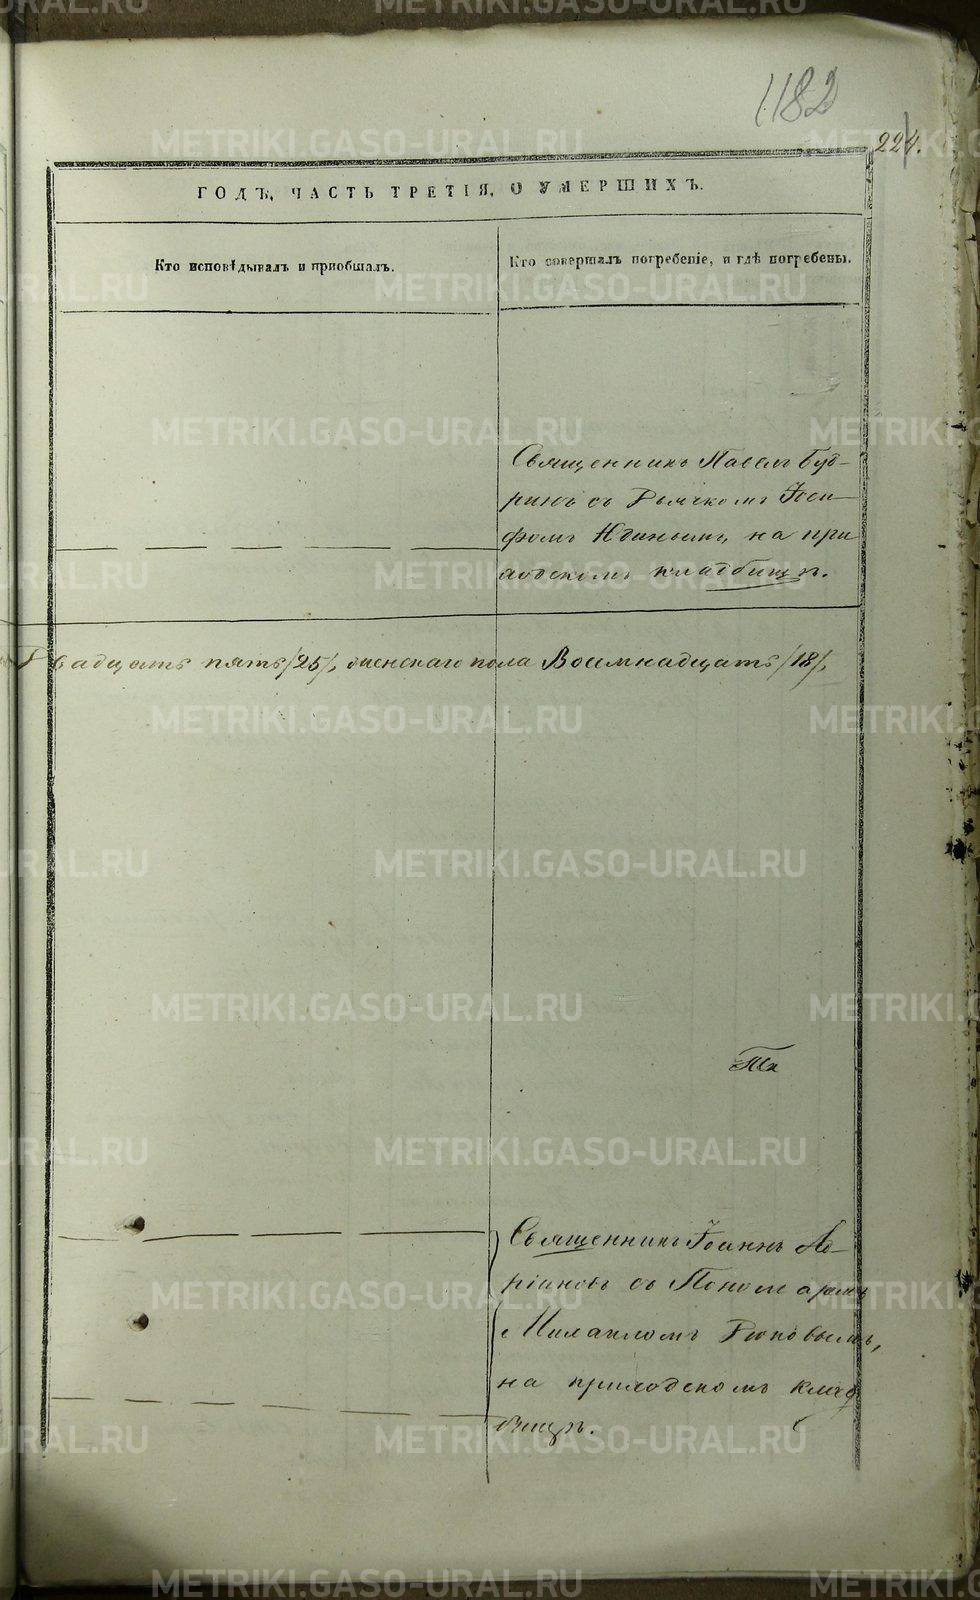 1182
224.
ГОДЪ, ЧАСТЬ ТРЕТІЯ, О УМЕРШИХЪ.
Кто исповѣдывалъ и приобщалъ.
Кто совершалъ погребеніе, и гдѣ погребены.
Священникъ Павелъ Буд-
ринъ съ Іоси-
фомъ Юдинымъ, на при
ходскомъ кладбищѣ.
Двадцать пять /25/, женскаго пола Восемнадцать /18/,
Священникъ Іоаннъ Ад-
ріановъ съ Пономаремъ
Михаиломъ Рюповымъ,
на приходскомъ клад
бищѣ.
METRIKI.GASO-URAL.RU